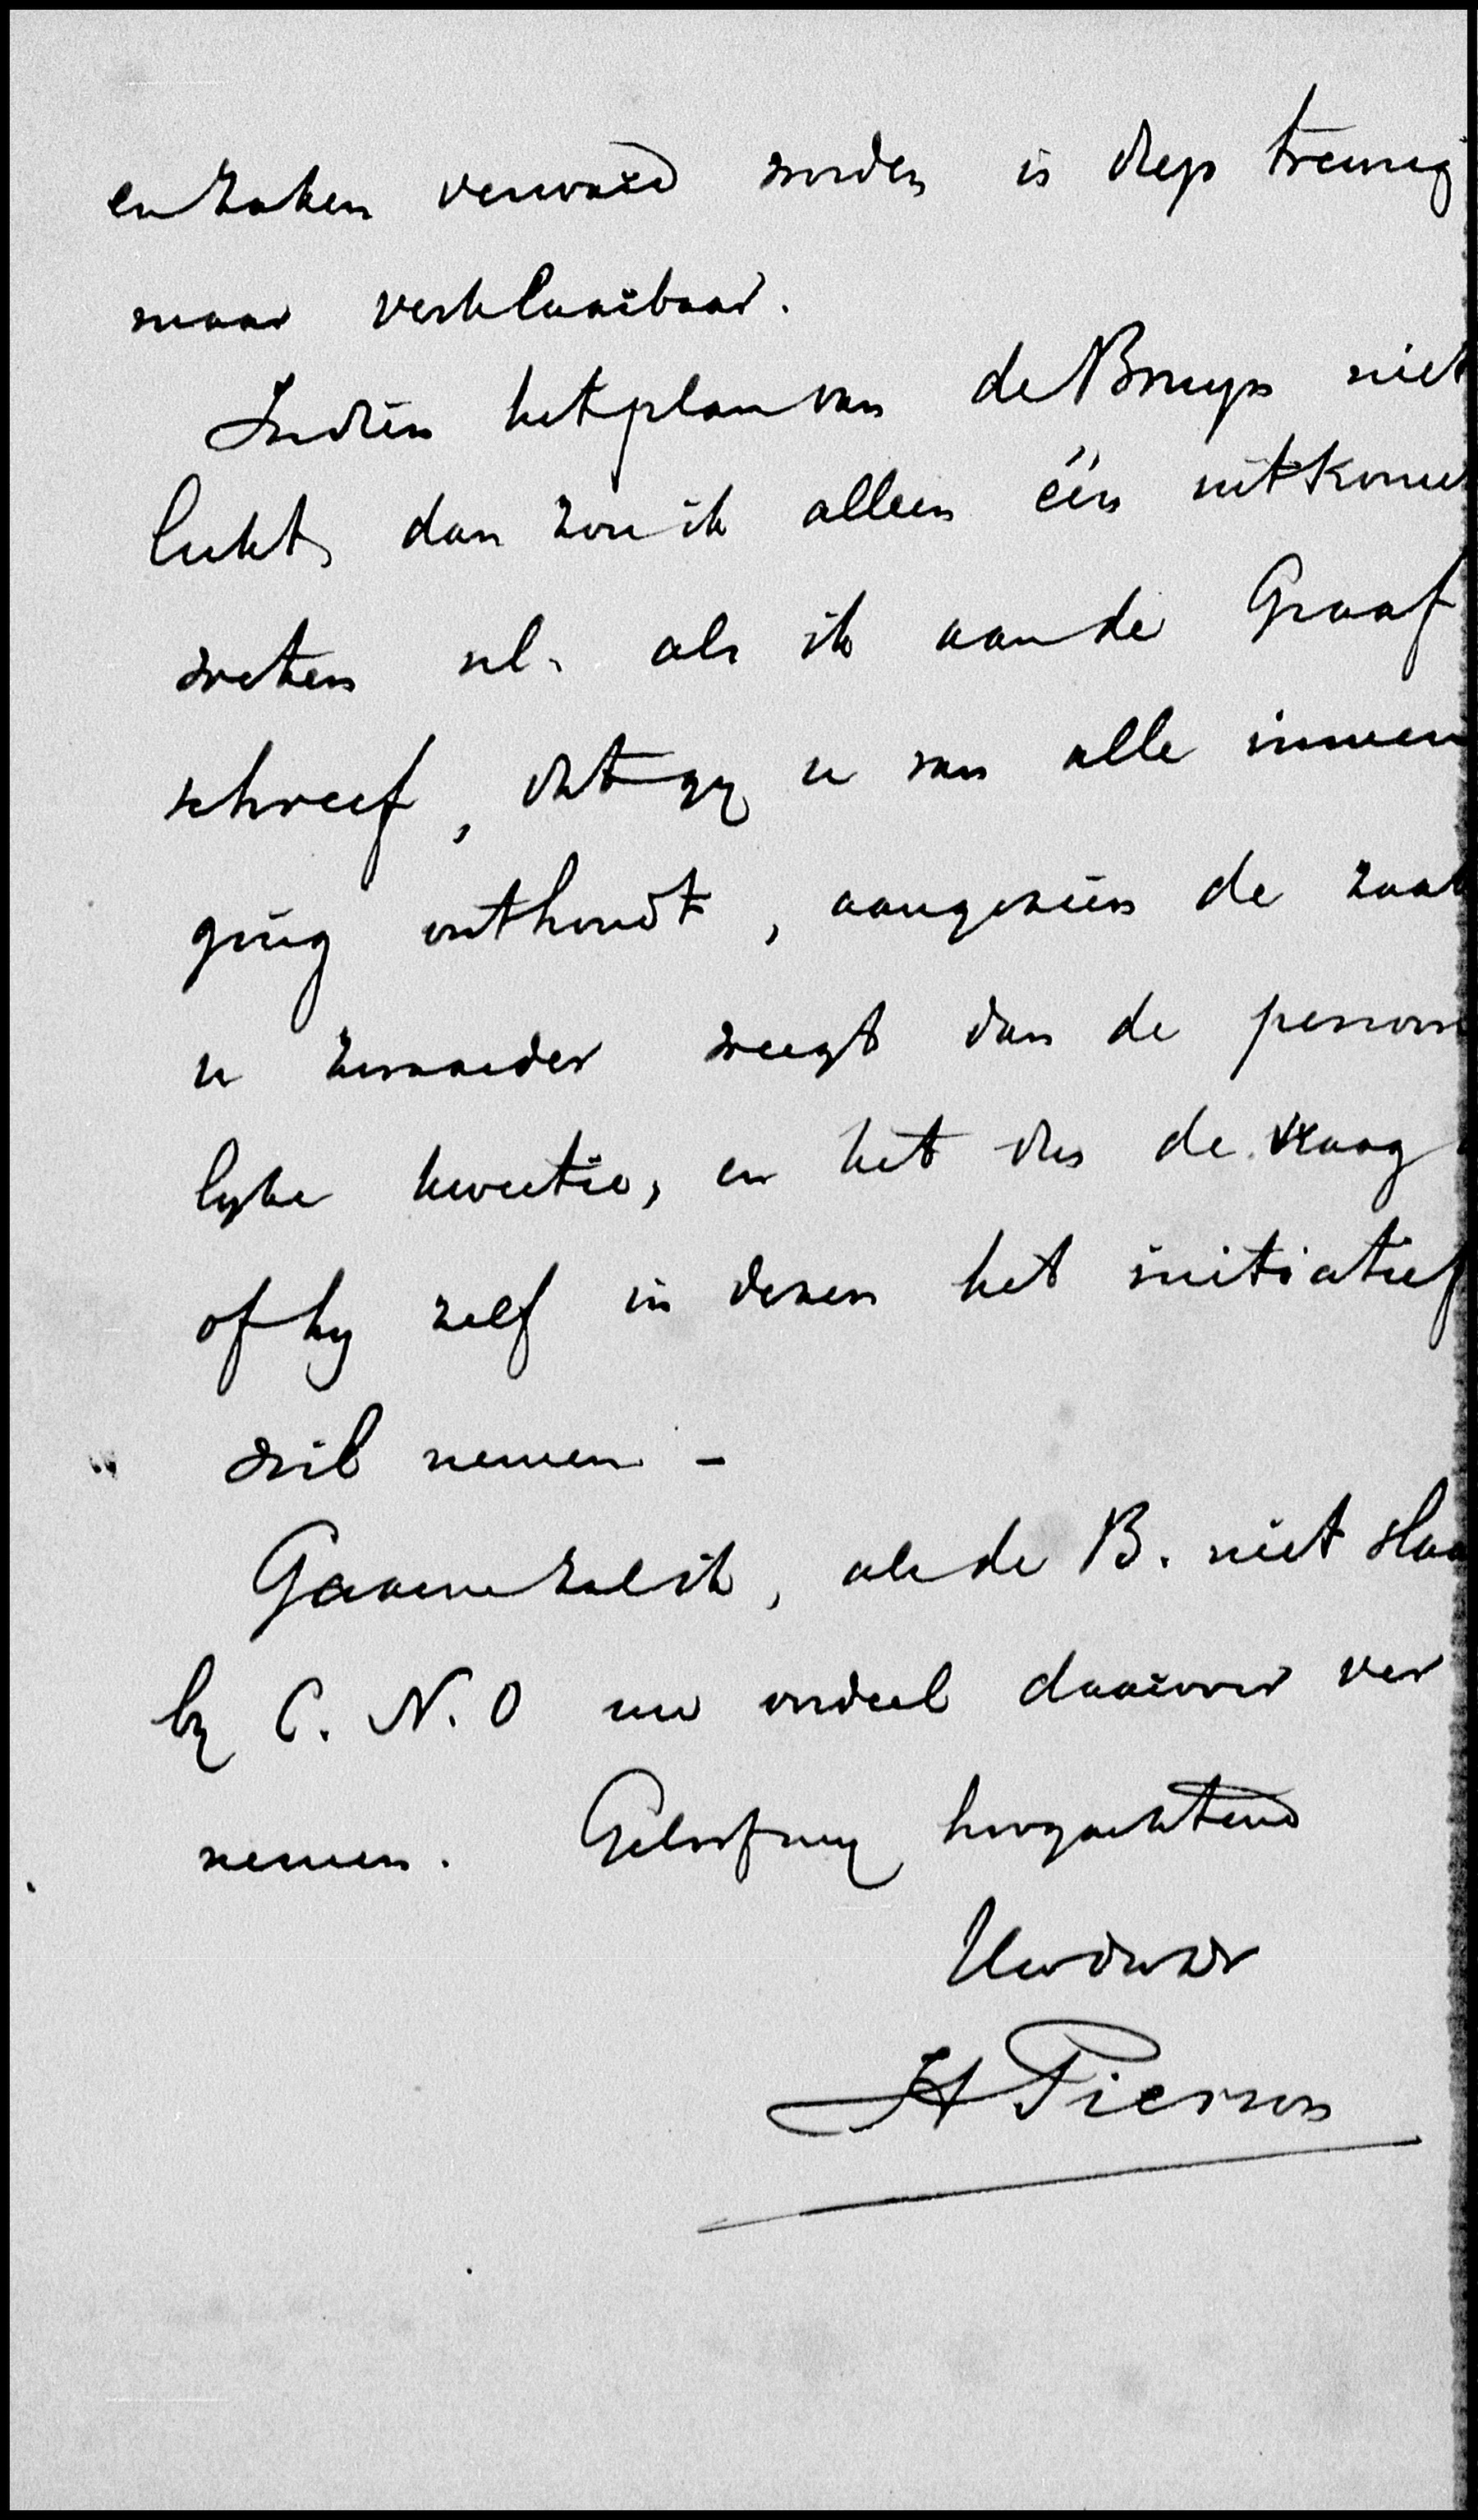 en zaken verward worden is diep treurig
maar verklaarbaar.
Indien het plan van de Bruyn niet
lukt, dan zou ik alleen één uitkomst
weten nl. als ik aan de Graaf
schreef, dat gy u van alle inmen
ging onthoudt, aangezien de zaak
u zwaarder weegt dan de persoon
lyke kwestie, en het dus de vraag
of hy zelf in dezen het initiatief
wil nemen -
Gaarne zal ik, als de B. niet slaa
by C. N. O uw oordeel daarover ver
nemen. Geloof my hoogachtend
Uw dw dr
H Pierson